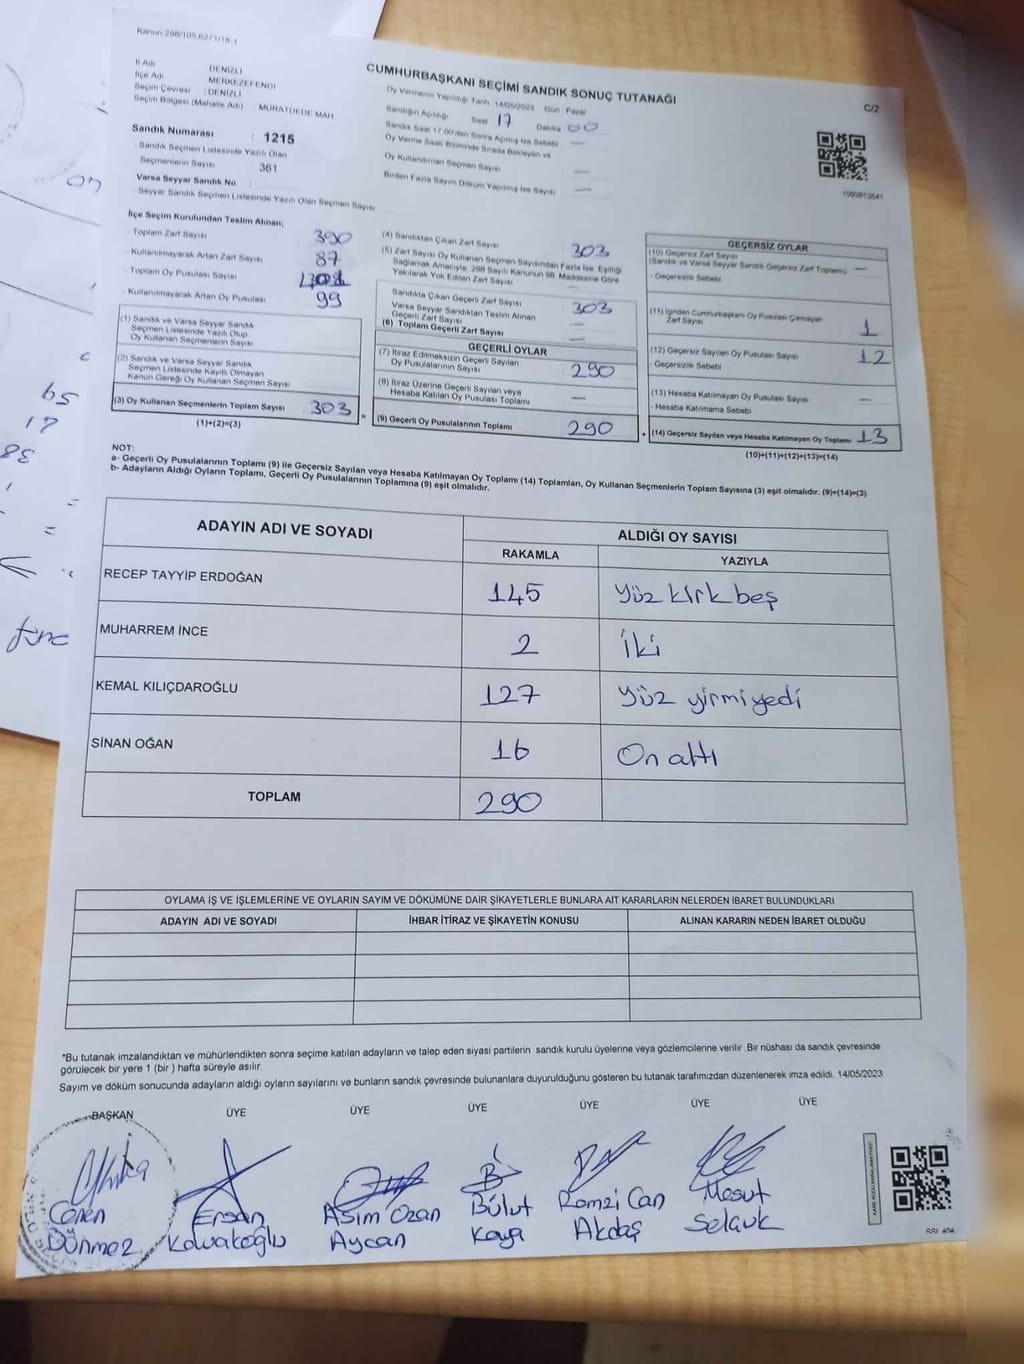 Kanun 298/105,627/1/18-1
İl Adı : DENİZLİ
İlçe Adı : MERKEZEFENDİ
Seçim Çevresi : DENİZLİ
Seçim Bölgesi (Mahalle Adı) : MURATDEDE MAH
Sandık Numarası : 1215
Sandık Seçmen Listesinde Yazılı Olan
Seçmenlerin Sayısı : 361
Varsa Seyyar Sandık No
Seyyar Sandık Seçmen Listesinde Yazılı Olan Seçmen Sayısı
CUMHURBAŞKANI SEÇİMİ SANDIK SONUÇ TUTANAĞI
C/2
Oy Vermenin Yapıldığı Tarih :14/05/2023 Gün : Pazar
Sandığın Açıldığı Saat 17 Dakika 00
Sandık Saat 17.00'den Sonra Açılmış İse Sebebi —
Oy Verme Saati Bitiminde Sırada Bekleyen ve
Oy Kullandırılan Seçmen Sayısı —
Birden Fazla Sayım Döküm Yapılmış İse Sayısı —
İlçe Seçim Kurulundan Teslim Alınan;
Toplam Zarf Sayısı 390
Kullanılmayarak Artan Zarf Sayısı 87
Toplam Oy Pusulası Sayısı
Kullanılmayarak Artan Oy Pusulası 99
(1) Sandık ve Varsa Seyyar Sandık
Seçmen Listesinde Yazılı Olup
Oy Kullanan Seçmenlerin Sayısı
(2) Sandık ve Varsa Seyyar Sandık
Seçmen Listesinde Kayıtlı Olmayan
Kanun Gereği Oy Kullanan Seçmen Sayısı
(3) Oy Kullanan Seçmenlerin Toplam Sayısı 303
(1)+(2)=(3)
(4) Sandıktan Çıkan Zarf Sayısı 303
(5) Zarf Sayısı Oy Kullanan Seçmen Sayısından Fazla İse, Eşitliği
Sağlamak Amacıyla, 298 Sayılı Kanunun 98. Maddesine Göre
Yakılarak Yok Edilen Zarf Sayısı —
Sandıkta Çıkan Geçerli Zarf Sayısı 303
Varsa Seyyar Sandıktan Teslim Alınan
Geçerli Zarf Sayısı —
(6) Toplam Geçerli Zarf Sayısı —
GEÇERLİ OYLAR
(7) İtiraz Edilmeksizin Geçerli Sayılan
Oy Pusulalarının Sayısı 290
(8) İtiraz Üzerine Geçerli Sayılan veya
Hesaba Katılan Oy Pusulası Toplamı —
(9) Geçerli Oy Pusulalarının Toplamı 290
1000813541
GEÇERSİZ OYLAR
(10) Geçersiz Zarf Sayısı
(Sandık ve Varsa Seyyar Sandık Geçersiz Zarf Toplamı) —
- Geçersizlik Sebebi
(11) İçinden Cumhurbaşkanı Oy Pusulası Çıkmayan
Zarf Sayısı 1
(12) Geçersiz Sayılan Oy Pusulası Sayısı 12
- Geçersizlik Sebebi
(13) Hesaba Katılmayan Oy Pusulası Sayısı —
- Hesaba Katılmama Sebebi
(14) Geçersiz Sayılan veya Hesaba Katılmayan Oy Toplamı 13
(10)+(11)+(12)+(13)=(14)
NOT:
a- Geçerli Oy Pusulalarının Toplamı (9) ile Geçersiz Sayılan veya Hesaba Katılmayan Oy Toplamı (14) Toplamları, Oy Kullanan Seçmenlerin Toplam Sayısına (3) eşit olmalıdır. (9)+(14)=(3)
b- Adayların Aldığı Oyların Toplamı, Geçerli Oy Pusulalarının Toplamına (9) eşit olmalıdır.
ADAYIN ADI VE SOYADI
ALDIĞI OY SAYISI
RAKAMLA YAZIYLA
RECEP TAYYİP ERDOĞAN 145 Yüz kırk beş
MUHARREM İNCE 2 İki
KEMAL KILIÇDAROĞLU 127 Yüz yirmi yedi
SİNAN OĞAN 16 On altı
TOPLAM 290
OYLAMA İŞ VE İŞLEMLERİNE VE OYLARIN SAYIM VE DÖKÜMÜNE DAİR ŞİKAYETLERLE BUNLARA AİT KARARLARIN NELERDEN İBARET BULUNDUKLARI
ADAYIN ADI VE SOYADI İHBAR İTİRAZ VE ŞİKAYETİN KONUSU ALINAN KARARIN NEDEN İBARET OLDUĞU
*Bu tutanak imzalandıktan ve mühürlendikten sonra seçime katılan adayların ve talep eden siyasi partilerin sandık kurulu üyelerine veya gözlemcilerine verilir .Bir nüshası da sandık çevresinde
görülecek bir yere 1 (bir ) hafta süreyle asılır.
Sayım ve döküm sonucunda adayların aldığı oyların sayılarını ve bunların sandık çevresinde bulunanlara duyurulduğunu gösteren bu tutanak tarafımızdan düzenlenerek imza edildi. 14/05/2023
BAŞKAN ÜYE ÜYE ÜYE ÜYE ÜYE ÜYE
Ceren Ersan Asım Ozan Bülut Remzi Can Mesut
Dönmez Kavakoğlu Aycan Kaya Akdaş Selçuk